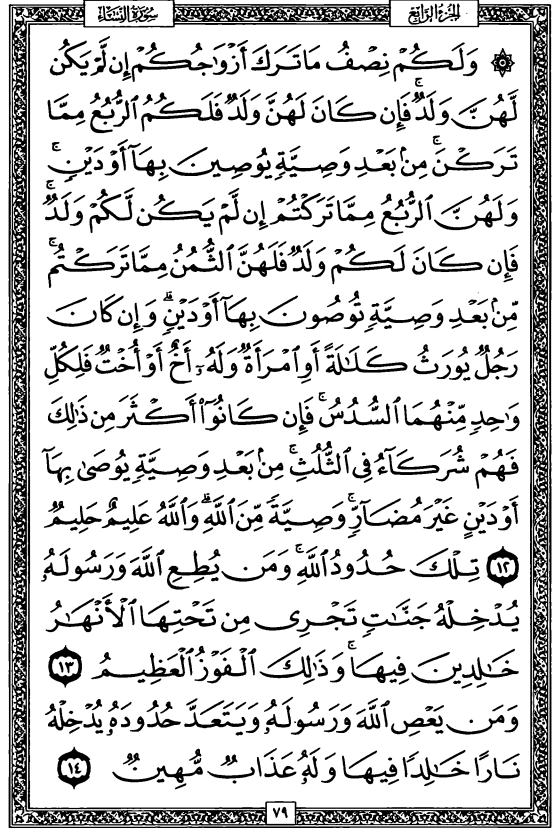 الجزء الرابع
سورة النساء
۞ وَلَكُمْ نِصْفُ مَا تَرَكَ أَزْوَٰجُكُمْ إِن لَّمْ يَكُن
لَّهُنَّ وَلَدٌ ۚ فَإِن كَانَ لَهُنَّ وَلَدٌ فَلَكُمُ ٱلرُّبُعُ مِمَّا
تَرَكْنَ ۚ مِنۢ بَعْدِ وَصِيَّةٍ يُوصِينَ بِهَآ أَوْ دَيْنٍ ۚ
وَلَهُنَّ ٱلرُّبُعُ مِمَّا تَرَكْتُمْ إِن لَّمْ يَكُن لَّكُمْ وَلَدٌ ۚ
فَإِن كَانَ لَكُمْ وَلَدٌ فَلَهُنَّ ٱلثُّمُنُ مِمَّا تَرَكْتُم ۚ
مِّنۢ بَعْدِ وَصِيَّةٍ تُوصُونَ بِهَآ أَوْ دَيْنٍ ۗ وَإِن كَانَ
رَجُلٌ يُورَثُ كَلَٰلَةً أَوِ ٱمْرَأَةٌ وَلَهُۥٓ أَخٌ أَوْ أُخْتٌ فَلِكُلِّ
وَٰحِدٍ مِّنْهُمَا ٱلسُّدُسُ ۚ فَإِن كَانُوٓا۟ أَكْثَرَ مِن ذَٰلِكَ
فَهُمْ شُرَكَآءُ فِى ٱلثُّلُثِ ۚ مِنۢ بَعْدِ وَصِيَّةٍ يُوصَىٰ بِهَآ
أَوْ دَيْنٍ غَيْرَ مُضَآرٍّ ۚ وَصِيَّةً مِّنَ ٱللَّهِ ۗ وَٱللَّهُ عَلِيمٌ حَلِيمٌ
١٢ تِلْكَ حُدُودُ ٱللَّهِ ۚ وَمَن يُطِعِ ٱللَّهَ وَرَسُولَهُۥ
يُدْخِلْهُ جَنَّٰتٍ تَجْرِى مِن تَحْتِهَا ٱلْأَنْهَٰرُ
خَٰلِدِينَ فِيهَا ۚ وَذَٰلِكَ ٱلْفَوْزُ ٱلْعَظِيمُ ١٣
وَمَن يَعْصِ ٱللَّهَ وَرَسُولَهُۥ وَيَتَعَدَّ حُدُودَهُۥ يُدْخِلْهُ
نَارًا خَٰلِدًا فِيهَا وَلَهُۥ عَذَابٌ مُّهِينٌ ١٤
٧٩